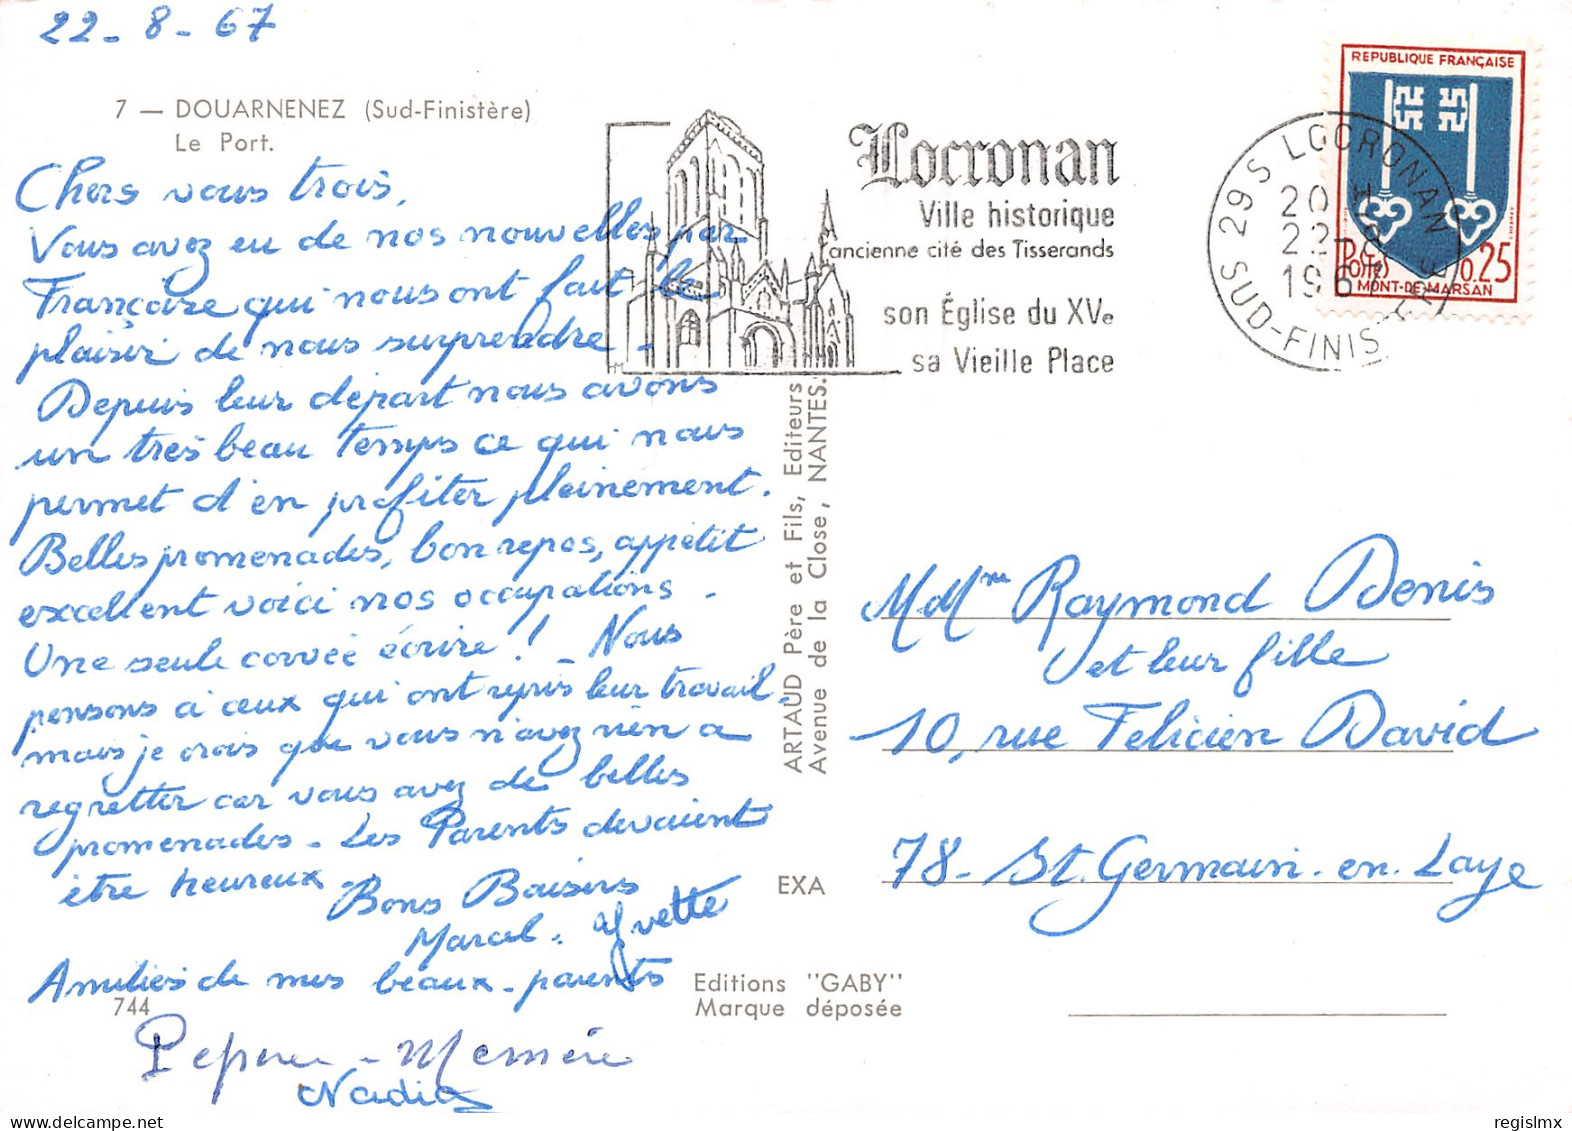 22-8-67
7 — DOUARNENEZ (Sud-Finistère)
Le Port.
Chers vous trois,
Vous avez eu de nos nouvelles par
Françoise qui nous ont fait le
plaisir de nous surprendre -
Depuis leur départ nous avons
un très beau temps ce qui nous
permet d'en profiter pleinement.
Belles promenades, bon repos, appétit
excellent voici nos occupations -
Une seule corvée écrire ! - Nous
pensons à ceux qui ont repris leur travail -
mais je crois que vous n'avez rien a
regretter car vous avez de belles
promenades - Les Parents devaient
être heureux -
Bons Baisers
Marcel - Yvette
Amitiés de mes beaux-parents
744
Mémère
Nadia
Locronan
Ville historique
ancienne cité des Tisserands
son Église du XVe
sa Vieille Place
29S LOCRONAN
SUD-FINISTERE
20 H
22-8
196
REPUBLIQUE FRANÇAISE
POSTES
0,25
MONT-DE-MARSAN
ARTAUD Père et Fils, Editeurs
Avenue de la Close, NANTES.
EXA
Editions "GABY"
Marque déposée
M Mme Raymond Denis
et leur fille
10, rue Felicien David
78 - St. Germain-en-Laye
regislmx